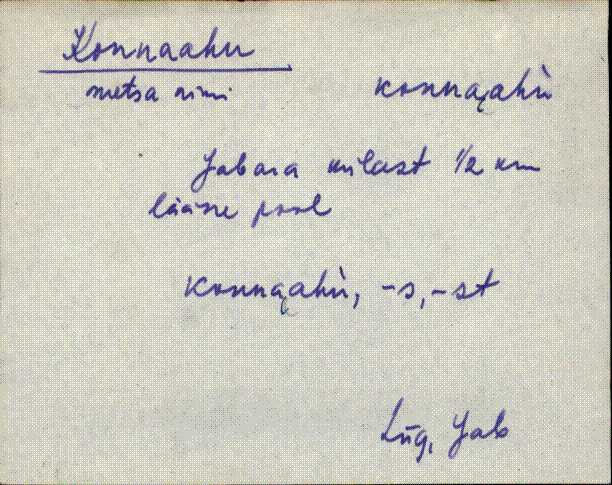 Konnaahu
metsa nimi konnaahù
Jabara külast 1/2 km
lääne pool
konnaahù, -s, -st
Lüg, Jab